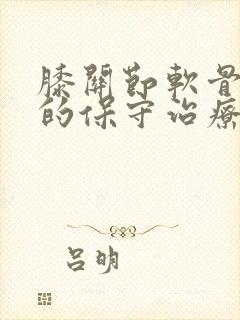 膝關節軟骨
的保守治療
吕明